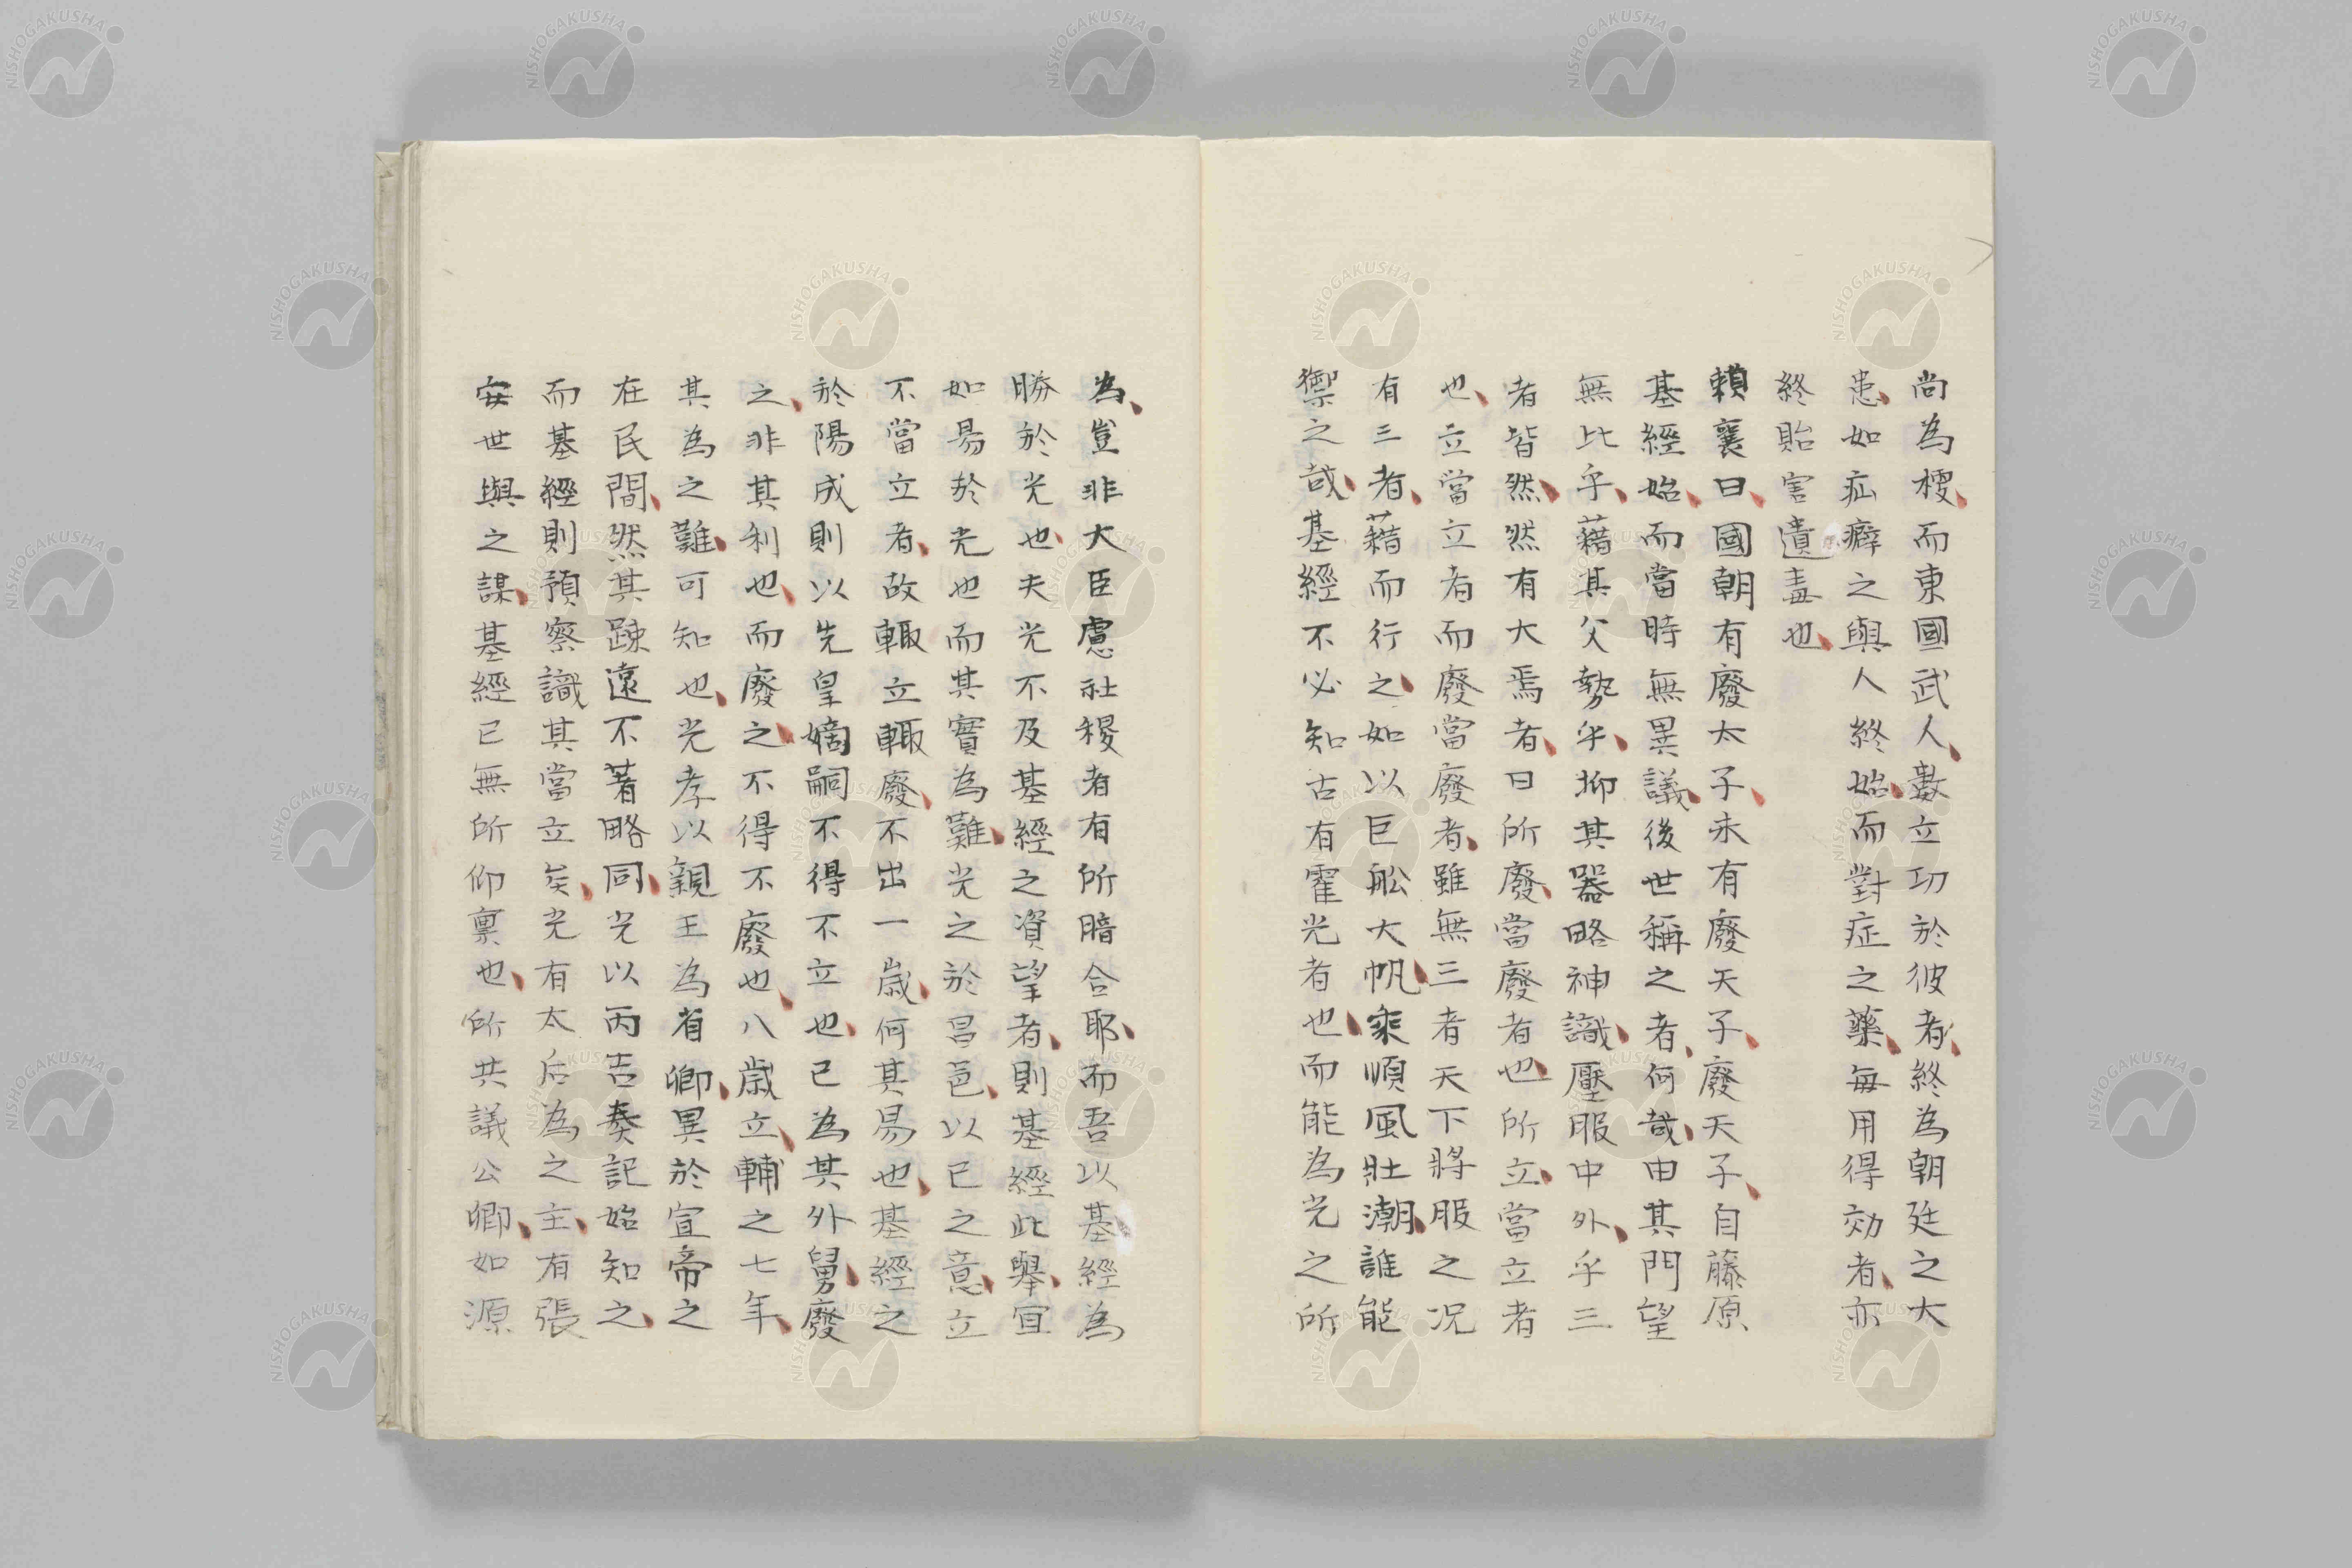 尚為稷而東國武人數立功於彼者終為朝廷之大
患如疝癖之與人終始而對症之藥每用得効者亦
終貽害遺毒也
賴襄曰國朝有廢太子未有廢天子廢天子自藤原
基經始而當時無異議後世稱之者何哉由其門望
無比乎藉其父勢乎抑其器略神識壓服中外乎三
者皆然然有大焉者曰所廢當廢者也所立當立者
也立當立者而廢當廢者雖無三者天下將服之况
有三者藉而行之如以巨舩大帆乘順風壯潮誰能
禦之哉基經不必知古有霍光者也而能為光之所
為豈非大臣慮社稷者有所暗合耶而吾以基經為
勝於光也夫光不及基經之資望者則基經此舉宜
如易於光也而其實為難光之於昌邑以己之意立
不當立者故輙立輙廢不出一歲何其易也基經之
於陽成則以先皇嫡嗣不得不立也已為其外舅廢
之非其利也而廢之不得不廢也八歲立輔之七年
其為之難可知也光孝以親王為省卿異於宣帝之
在民間然其踈遠不著略同光以丙吉奏記始知之
而基經則預察識其當立矣光有太后為之主有張
安世與之謀基經已無所仰稟也所共議公卿如源
NISHOGAKUSHA